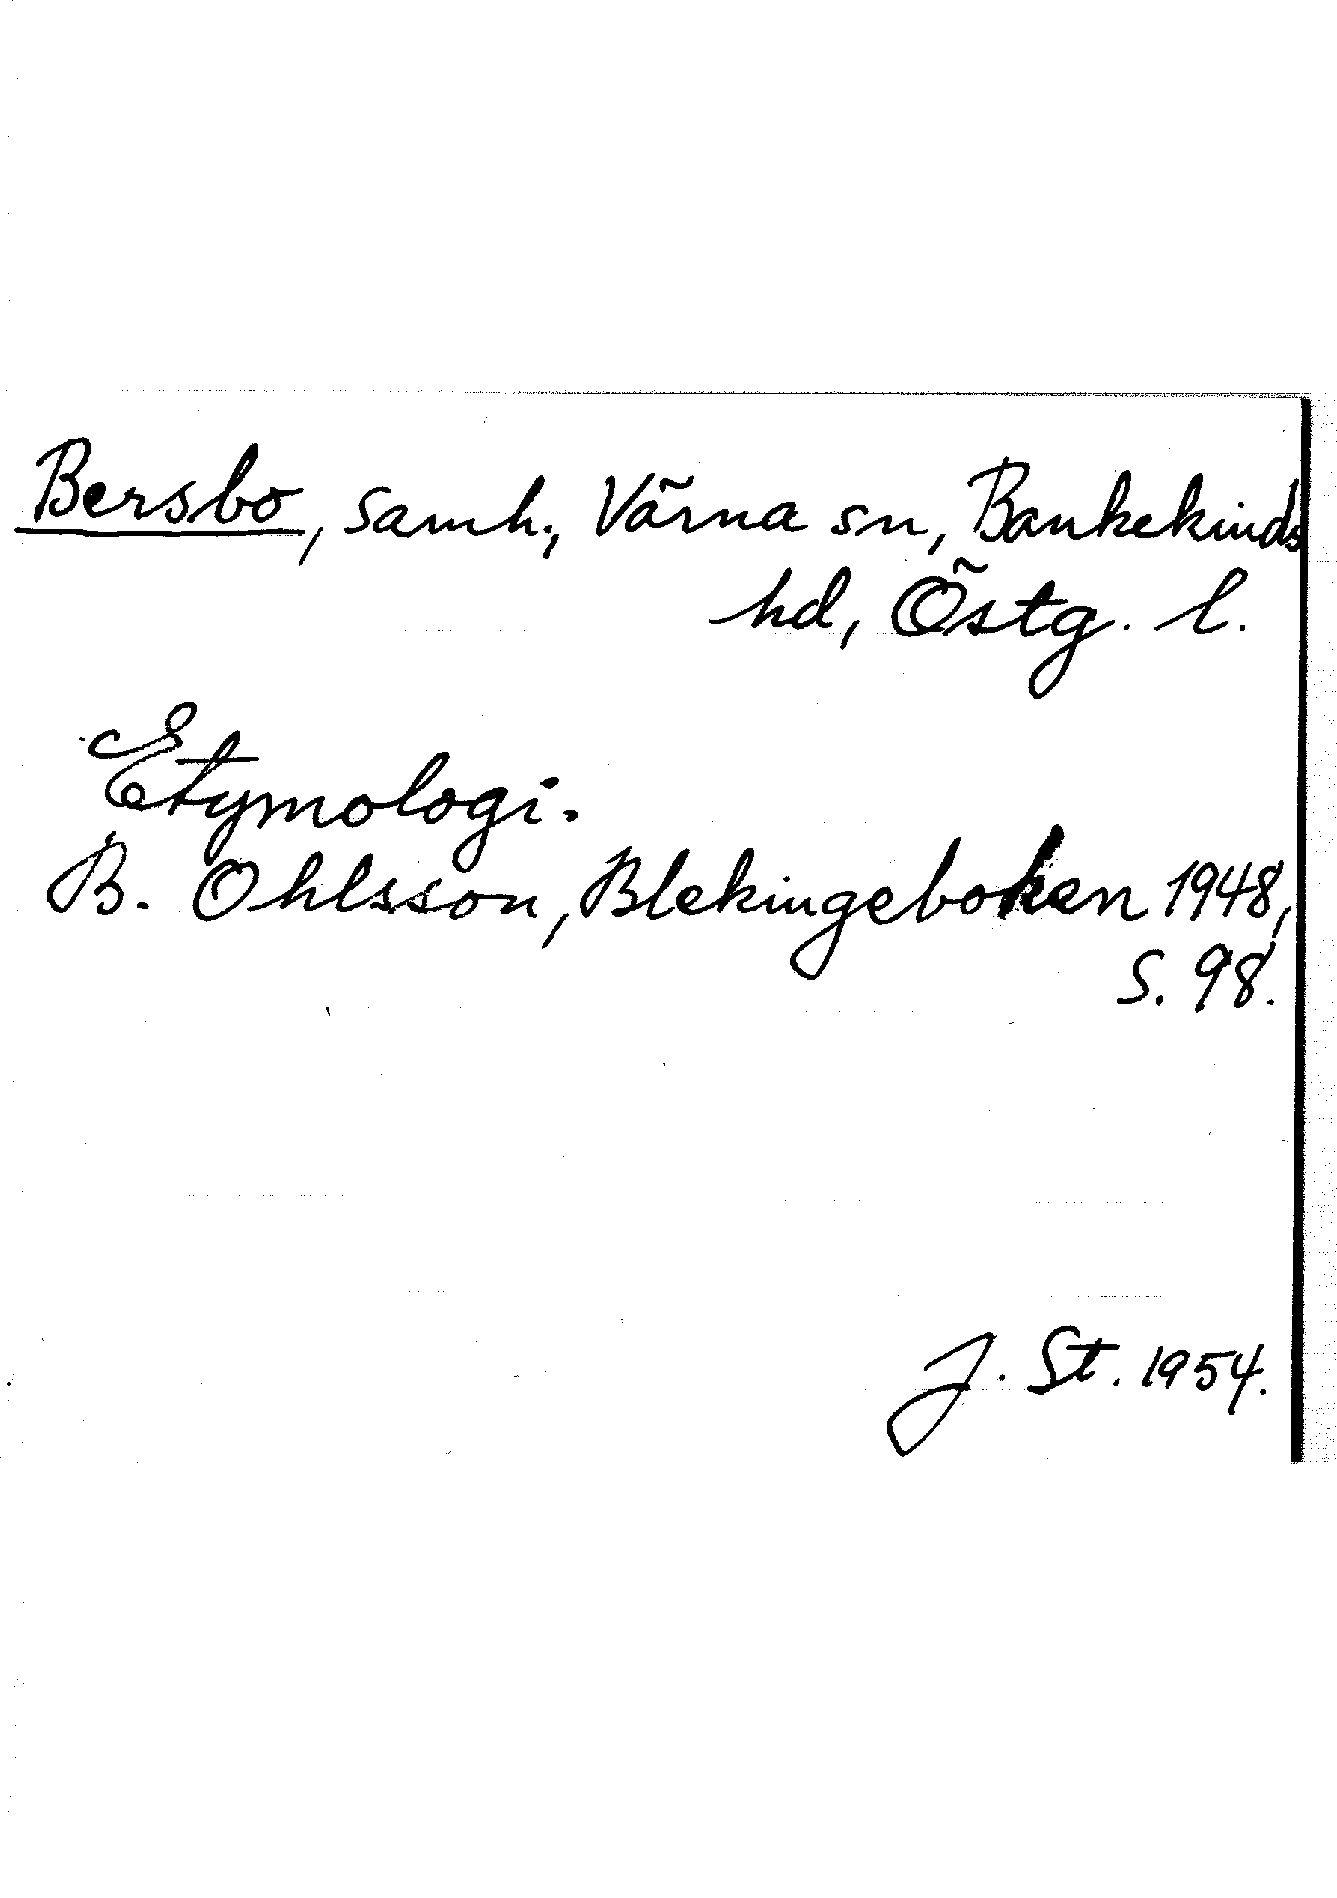 Bersbo, samh., Värna sn, Bankekinds
hd, Östg. l.
Etymologi.
B. Ohlsson, Blekingeboken 1948,
S. 98.
J. St. 1954.